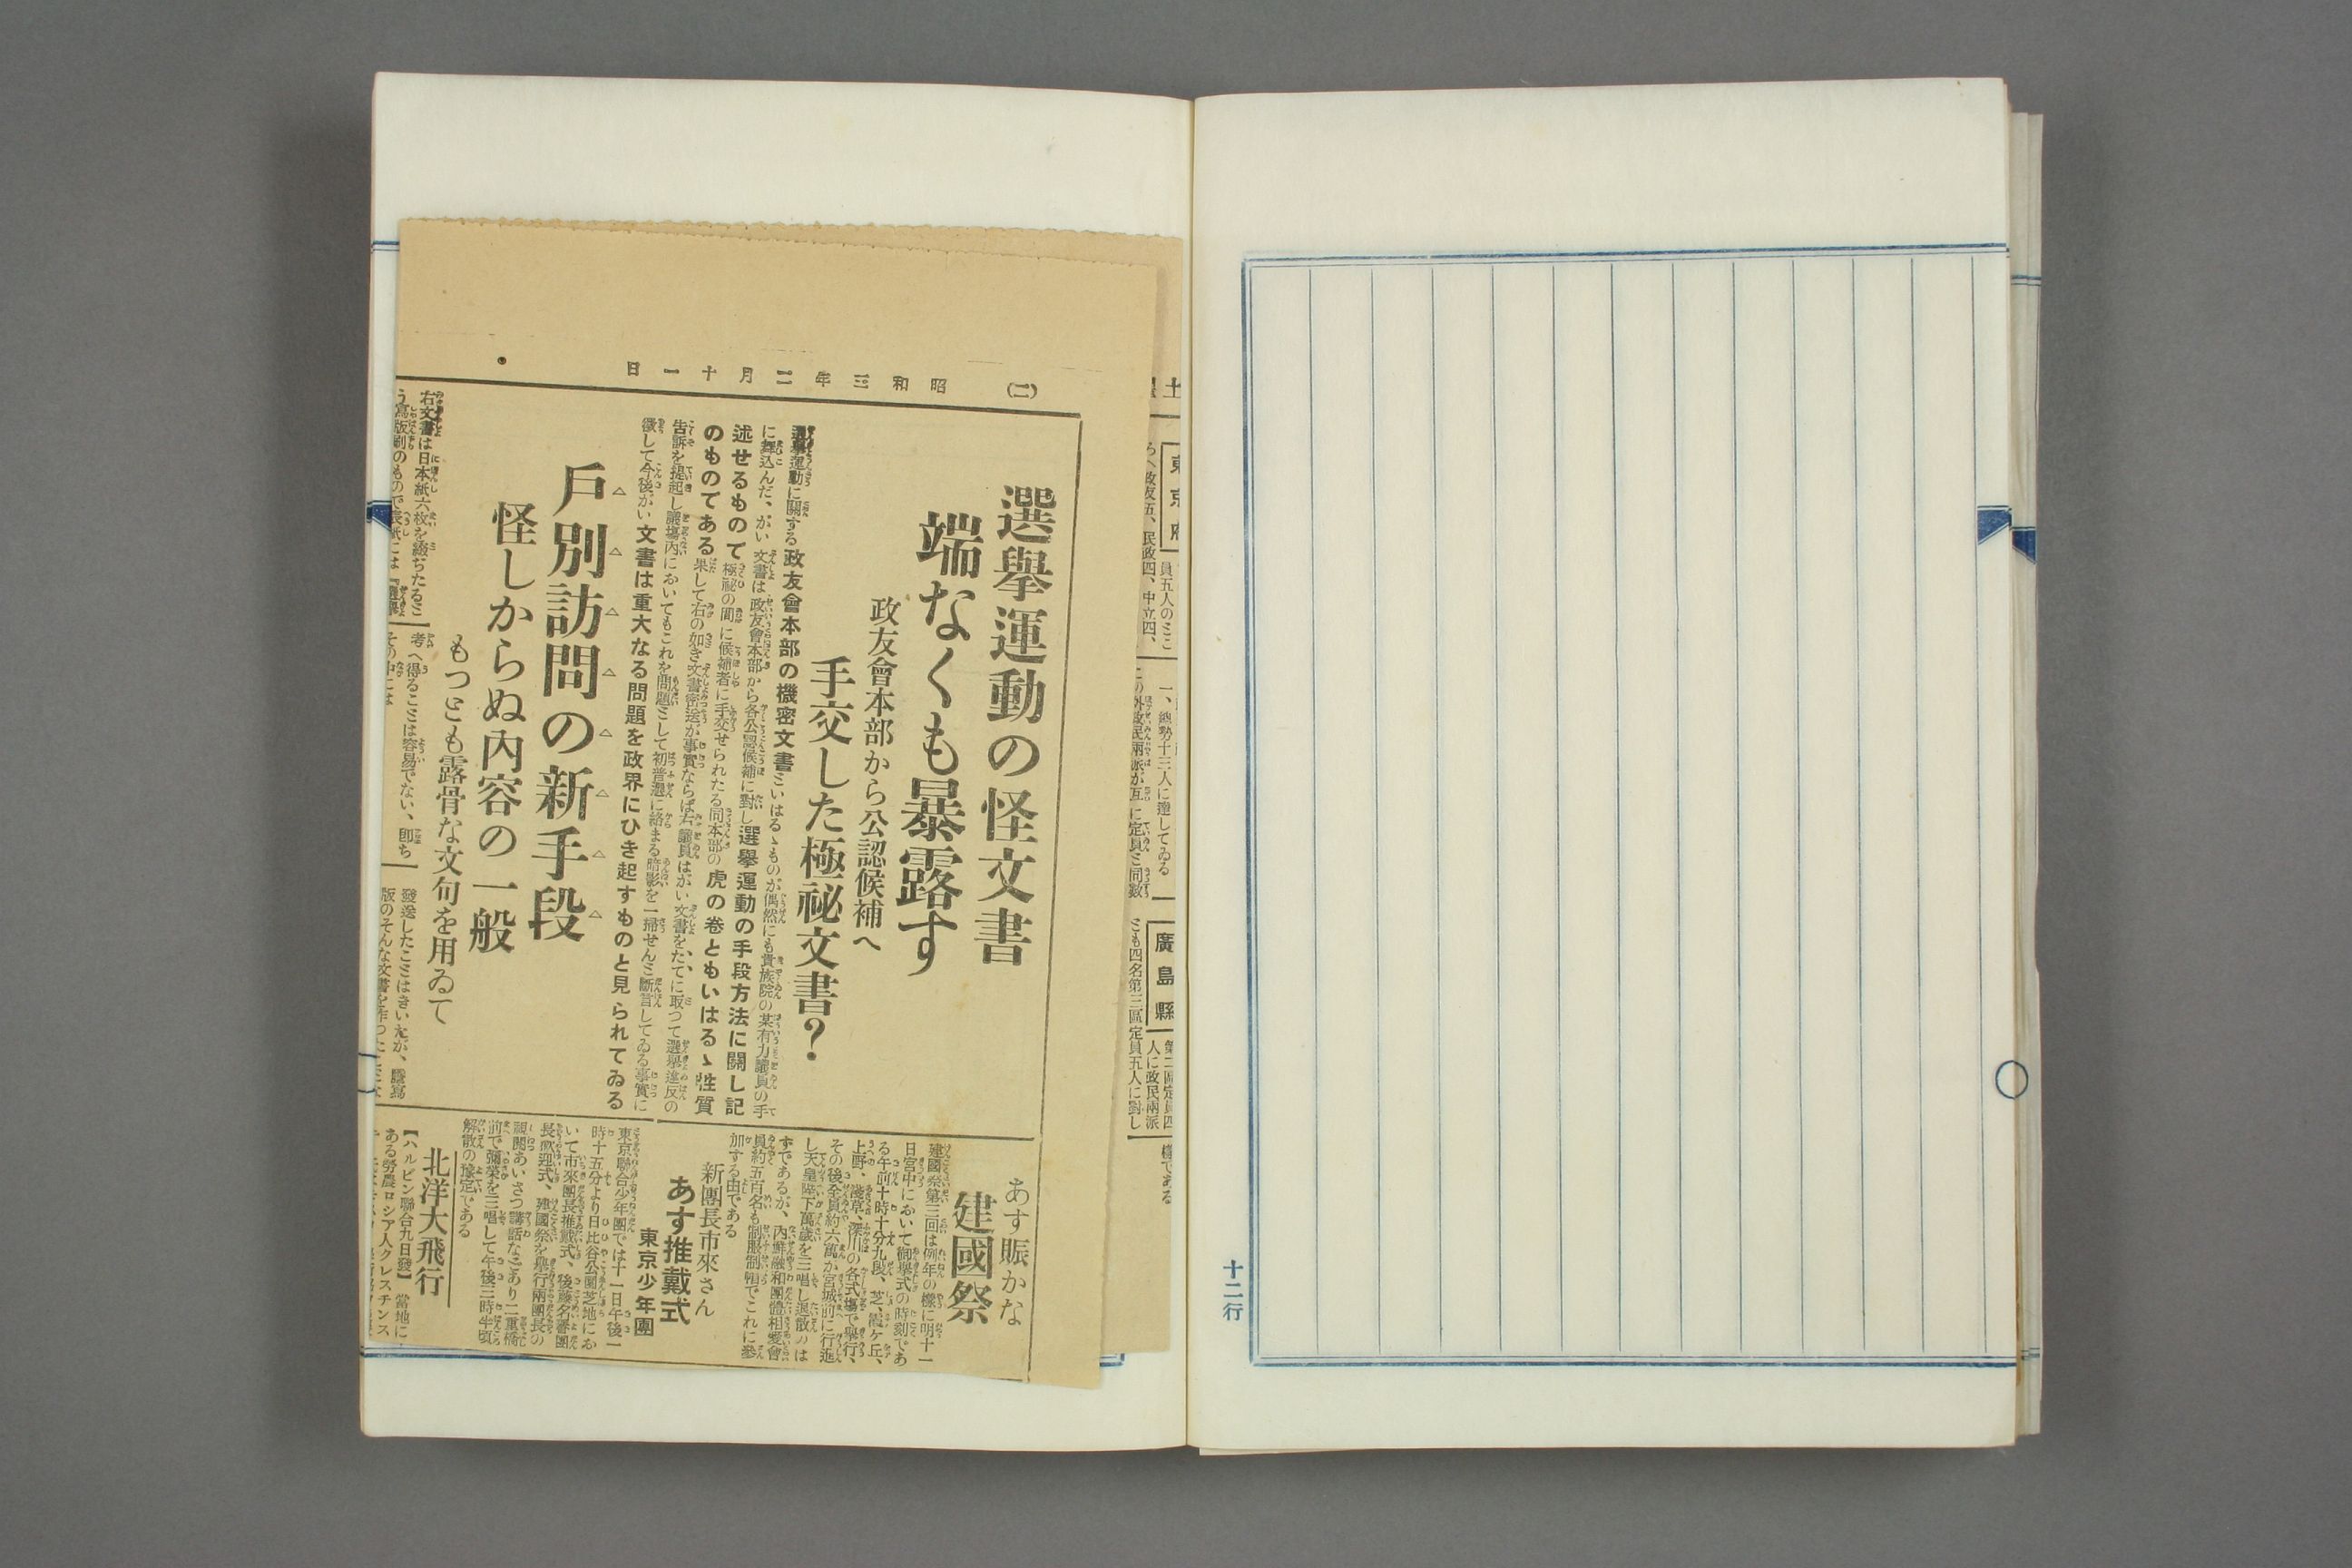 十二行
(二)
昭和三年二月十一日
選擧運動の怪文書
端なくも暴露す
政友會本部から公認候補へ
手交した極祕文書？
選擧運動に關する政友會本部の機密文書といはるゝものが偶然にも貴族院の某有力議員の手
に舞込んだ、がい文書は政友會本部から各公認候補に對し選擧運動の手段方法に關し記
述せるもので極祕の間に候補者に手交せられたる同本部の虎の卷ともいはるゝ性質
のものである果して右の如き文書密送が事實ならば右議員はがい文書をたてに取つて選擧違反の
告訴を提起し議場内においてもこれを問題として初普選に絡まる暗影を一掃せんと斷言してゐる事實に
徴して今後がい文書は重大なる問題を政界にひき起すものと見られてゐる
戸別訪問の新手段
怪しからぬ内容の一般
もつとも露骨な文句を用ゐて
右文書は日本紙六枚を綴ぢたると
う寫版刷のもので表紙には
考へ得ることは容易でない、即ち
その中には
發送したことはきいたが、謄寫
版のそんな文書を作つた
あす賑かな
建國祭
建國祭第三回は例年の樣に明十一
日宮中において御擧式の時刻であ
る午前十時十分九段、芝、霞ケ丘、
上野、淺草、深川の各式場で擧行、
その後全員約六萬が宮城前に行進
し天皇陛下萬歳を三唱し退散のは
ずであるが、内鮮融和團體相愛會
員約五百名も制服制帽でこれに參
加する由である
新團長市來さん
あす推戴式
東京少年團
東京聯合少年團では十一日午後一
時十五分より日比谷公園芝地にお
いて市來團長推戴式、後藤名譽團
長歡迎式、建國祭を擧行兩團長の
親閲あいさつ講話などあり二重橋
前で彌榮を三唱して午後三時半頃
解散の豫定である
北洋大飛行
【ハルビン聯合九日發】當地に
ある勞農ロシア人クレスチンス
東京府
員五人のとこ
ろへ政友五、民政四、中立四、
一、總勢十三人に達してゐる
この外政民兩派が互に定員と同數
廣島縣
第二區定員四
人に政民兩派
とも四名第三區定員五人に對し
樣である